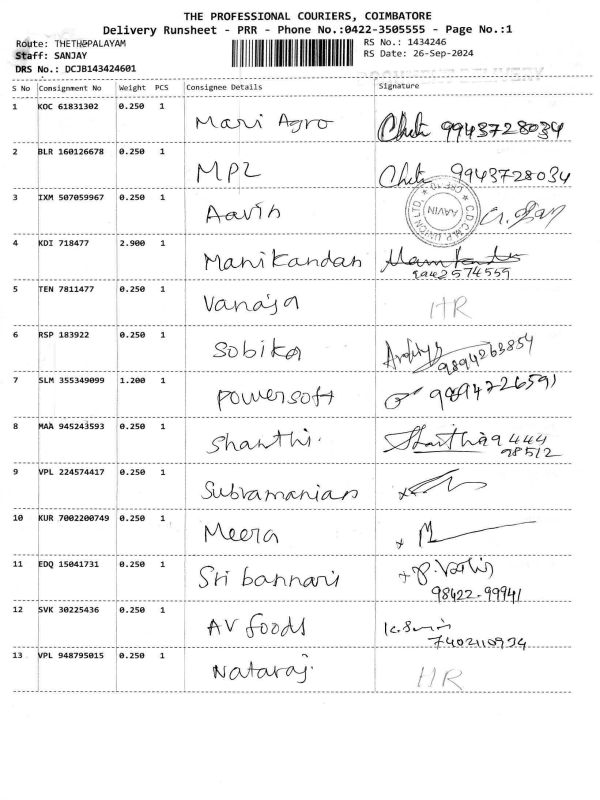 THE PROFESSIONAL COURIERS, COIMBATORE
Delivery Runsheet - PRR - Phone No.:0422-3505555 - Page No.:1
Route: THETHOPALAYAM
RS No.: 1434246
Staff: SANJAY
RS Date: 26-Sep-2024
DRS No.: DCJB143424601
S No Consignment No Weight PCS Consignee Details Signature
1 KOC 61831302 0.250 1 Mari Agro 9943728034
2 BLR 160126678 0.250 1 MPZ 9943728034
3 IXM 507059967 0.250 1 Aavin AAVIN
4 KDI 718477 2.900 1 Manikandan
9442574559
5 TEN 7811477 0.250 1 Vanaja HR
6 RSP 183922 0.250 1 Sobika
9894263854
7 SLM 355349099 1.200 1 powersoft 9894726591
8 MAA 945243593 0.250 1 Shanthi. 9444
98512
9 VPL 224574417 0.250 1 Subramanian
10 KUR 7002200749 0.250 1 Meera
11 EDQ 15041731 0.250 1 Sri bannari
98422-99941
12 SVK 30225436 0.250 1 AV foods
7402110934
13 VPL 948795015 0.250 1 Nataraj. HR